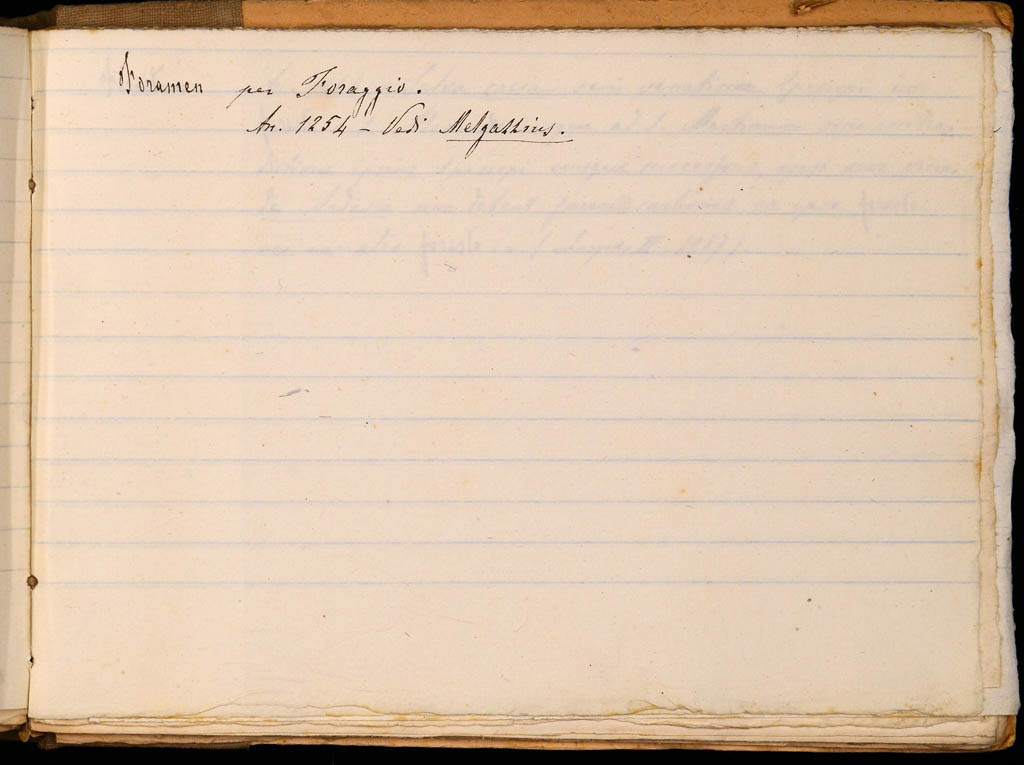 Foramen per Foraggio.
An. 1254 - Vedi Melgazzius.